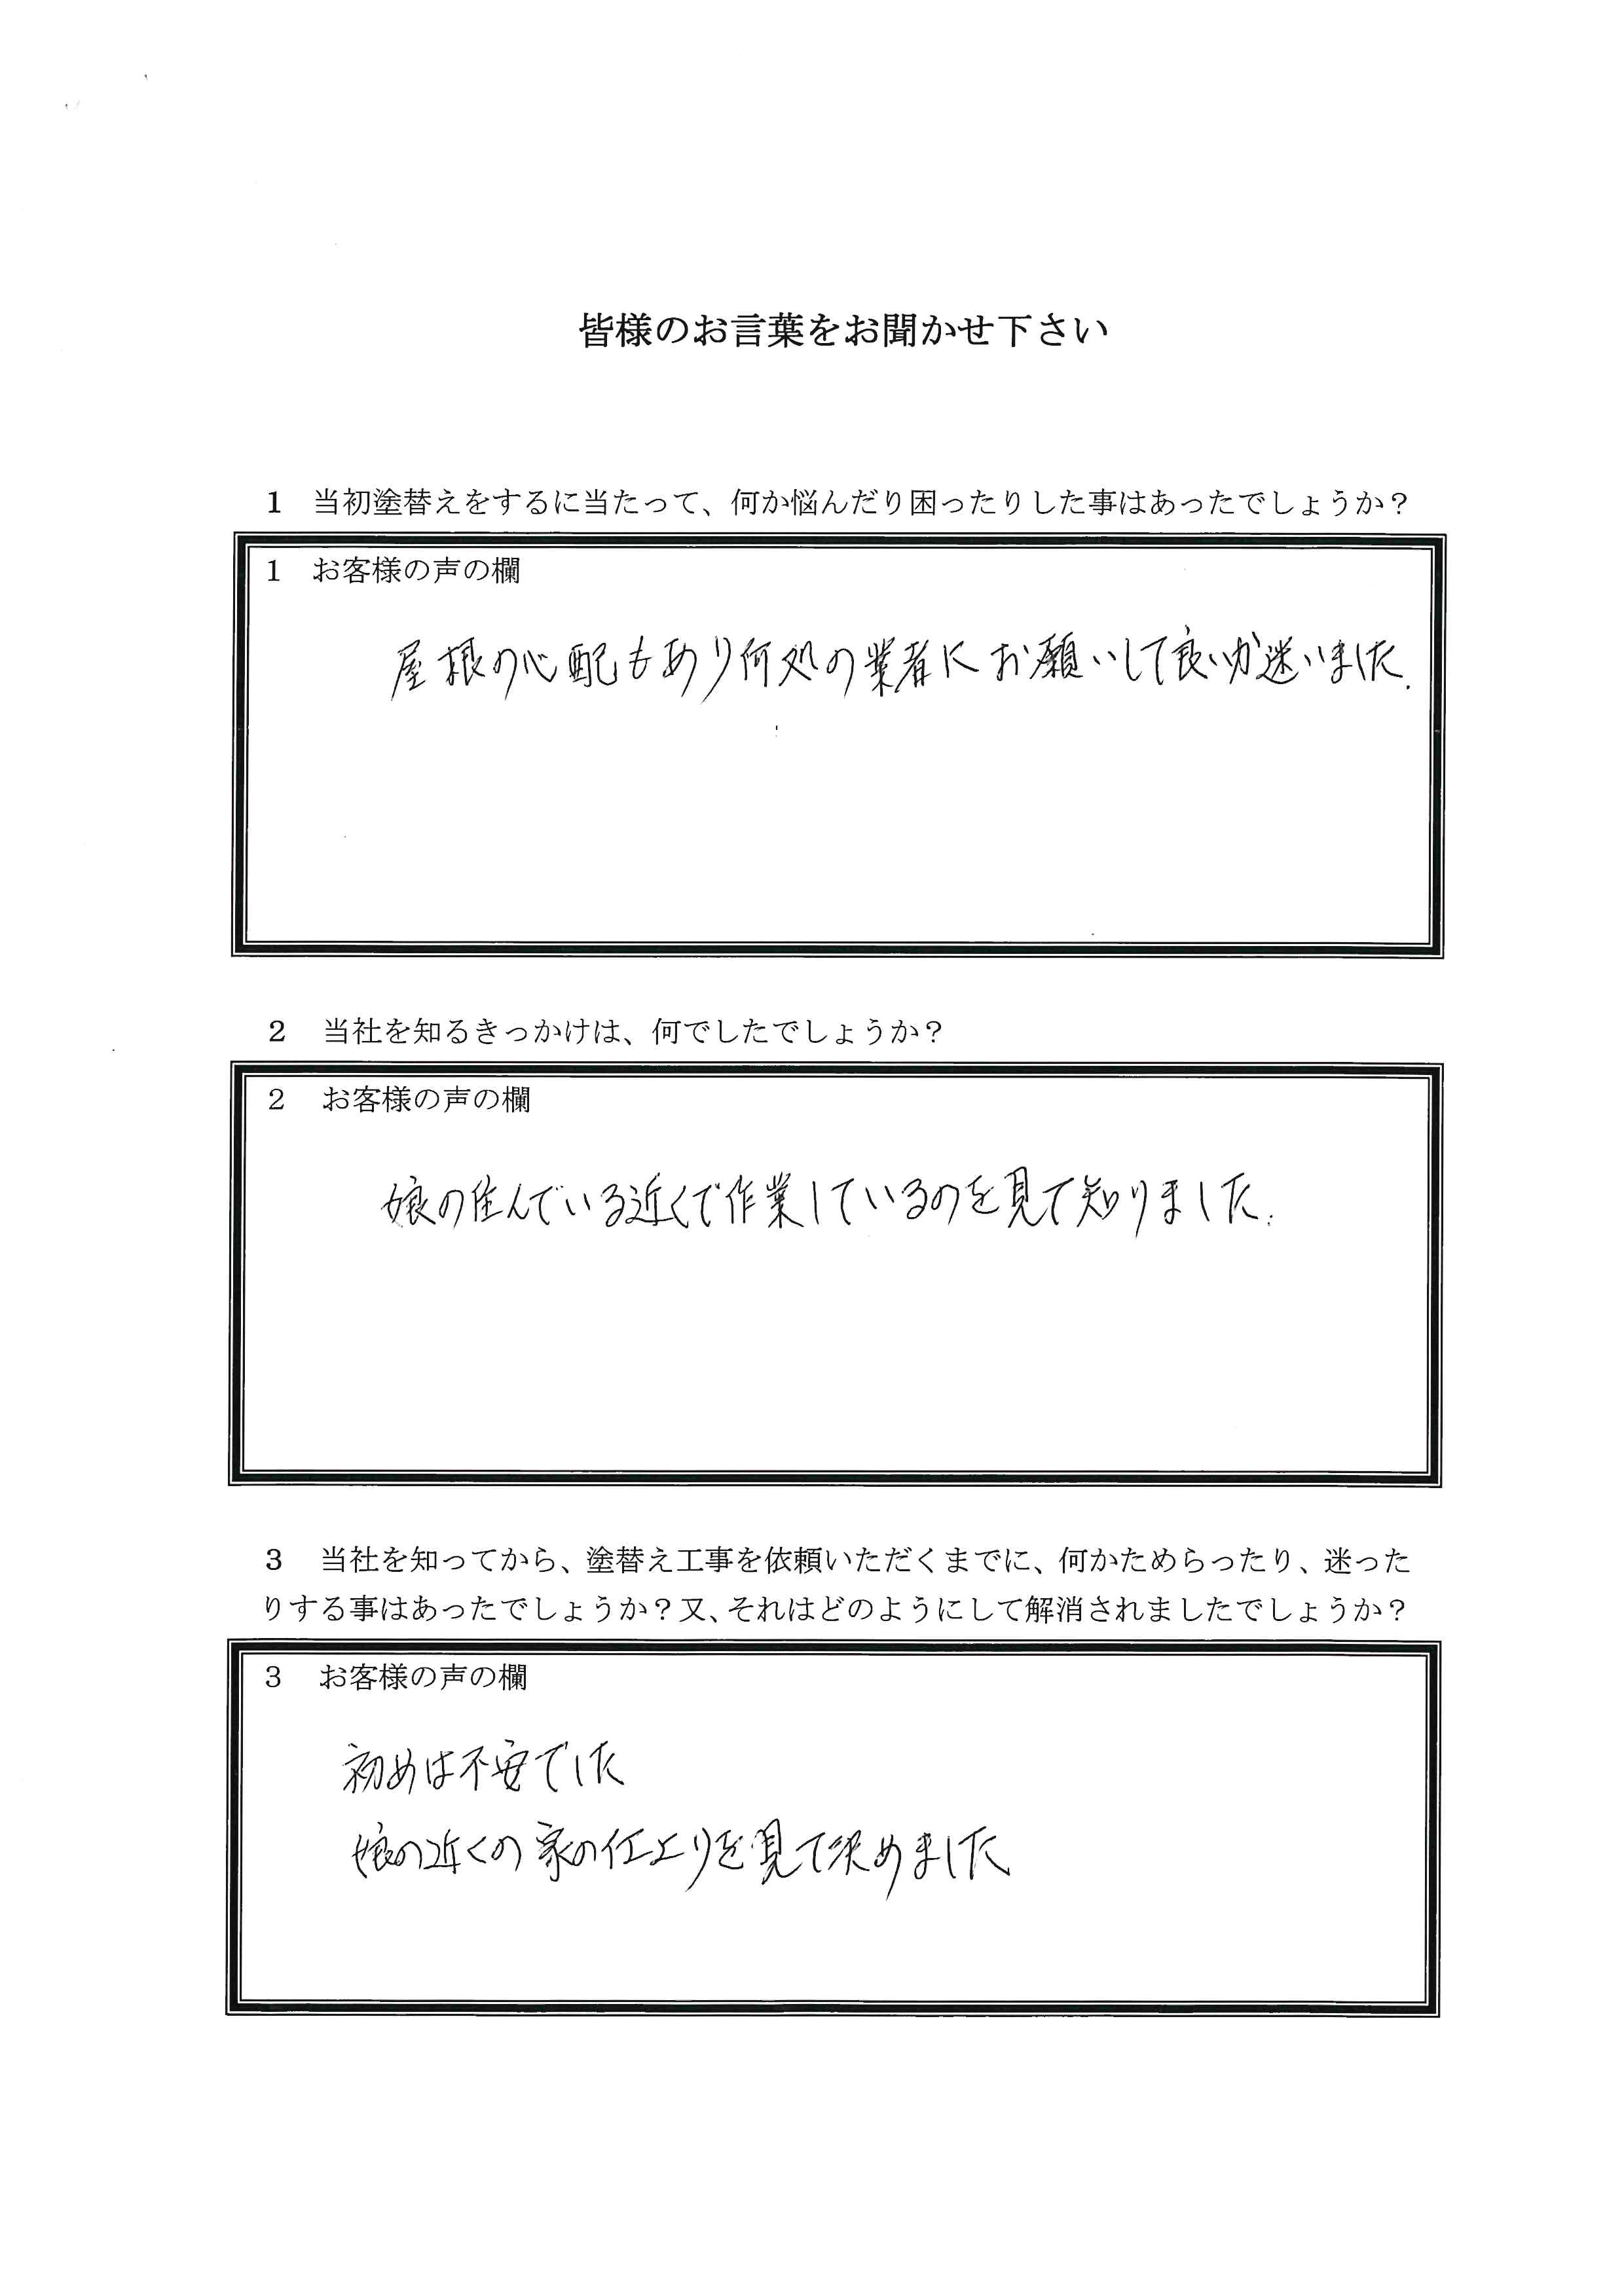 皆様のお言葉をお聞かせ下さい
1 当初塗替えをするに当たって、何か悩んだり困ったりした事はあったでしょうか？
1 お客様の声の欄
屋根の心配もあり何処の業者にお願いして良いか迷いました.
2 当社を知るきっかけは、何でしたでしょうか？
2 お客様の声の欄
娘の住んでいる近くで作業しているのを見て知りました.
3 当社を知ってから、塗替え工事を依頼いただくまでに、何かためらったり、迷った
りする事はあったでしょうか？又、それはどのようにして解消されましたでしょうか？
3 お客様の声の欄
初めは不安でした
娘の近くの家の仕上りを見て決めました